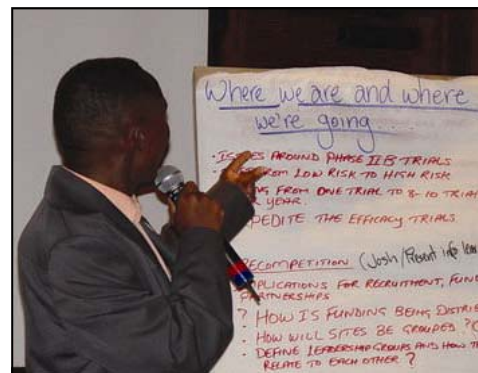 Where we are and where
we're going...
• ISSUES AROUND PHASE IIB TRIALS
FROM LOW RISK TO HIGH RISK
FROM ONE TRIAL TO 8-10 TRIA
YEAR.
THE EFFICACY TRIALS
RECOMPETITION (Josh/Present info
FOR RECRUITMENT, FUND
PARTNERSHIPS
? HOW IS FUNDING BEING DISTRI
• HOW WILL SITES BE GROUPED ?
• DEFINE LEADERSHIP GROUPS AND HOW TH
RELATE TO EACH OTHER ?